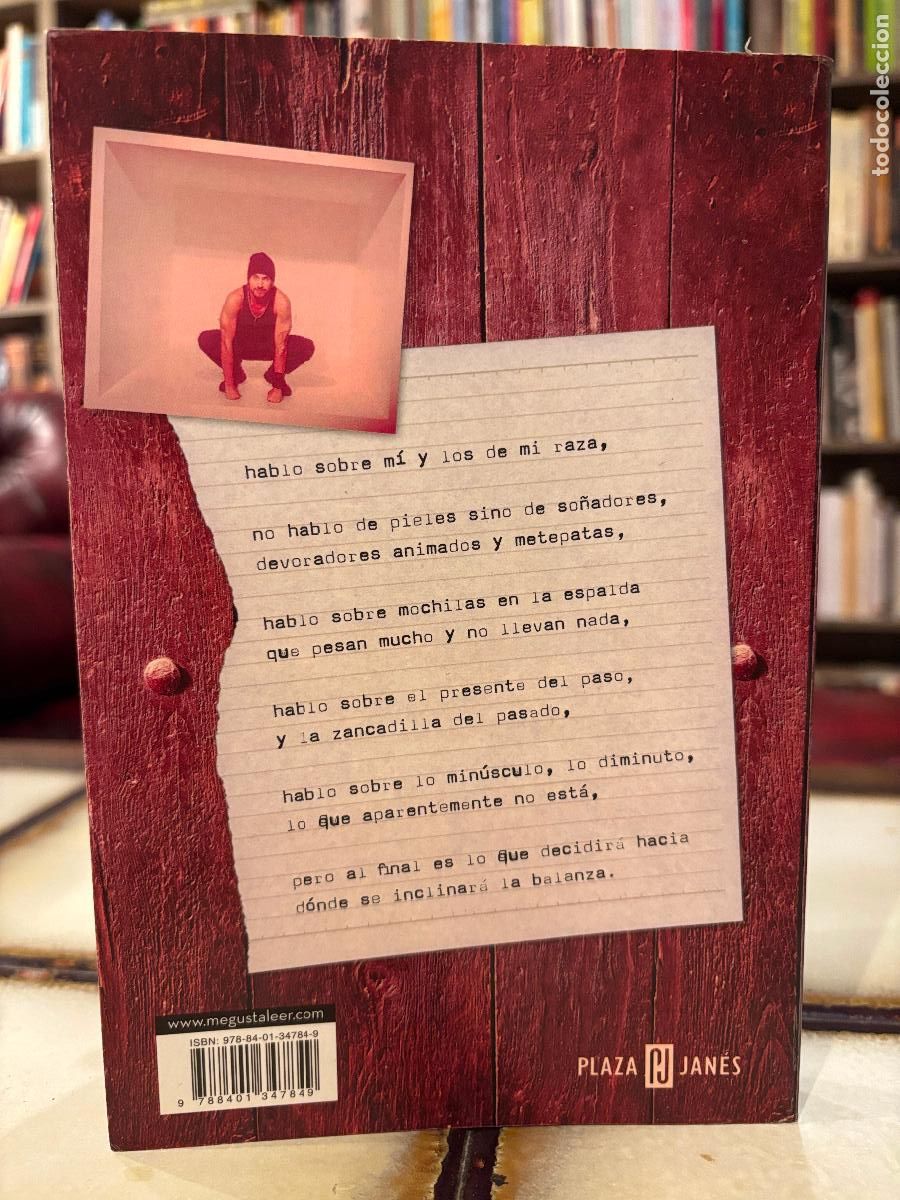 todocoleccion
hablo sobre mí y los de mi raza,
no hablo de pieles sino de soñadores,
devoradores animados y metepatas,
hablo sobre mochilas en la espalda
que pesan mucho y no llevan nada,
hablo sobre el presente del paso,
y la zancadilla del pasado,
hablo sobre lo minúsculo, lo diminuto,
lo que aparentemente no está,
pero al final es lo que decidirá hacia
dónde se inclinará la balanza.
www.megustaleer.com
ISBN: 978-84-01-34784-9
9 788401 347849
PLAZA PJ JANÉS